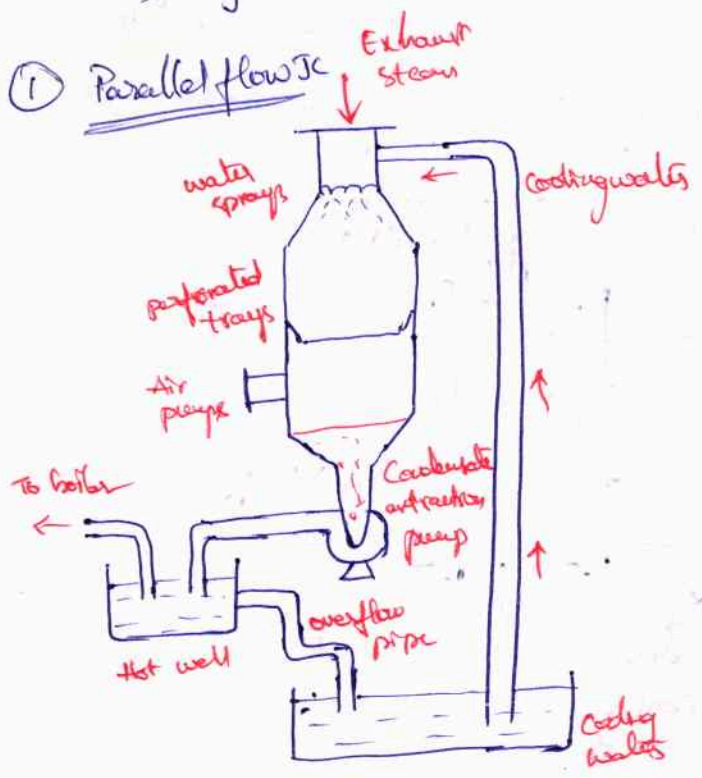 ① Parallel flow JC
Exhaust
steam
water
sprays
cooling water
perforated
trays
Air
pumps
To boiler
Condensate
extraction
pump
overflow
pipe
Hot well
Cooling
water